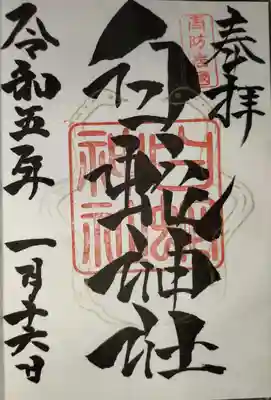 奉拝
周防岩國
白蛇神社
白蛇
神社
令和五年 一月十六日